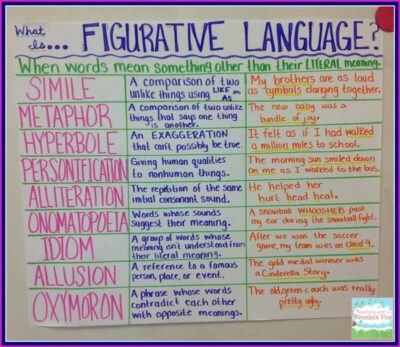 What Is... FIGURATIVE LANGUAGE?
When words mean something other than their LITERAL meaning.
SIMILE
A comparison of two
unlike things using LIKE or AS
My brothers are as loud
as cymbals clanging together.
METAPHOR
A comparison of two unlike
things that says one thing
is another.
The new baby was a
bundle of joy.
HYPERBOLE
An EXAGGERATION
that can't possibly be true.
It felt as if I had walked
a million miles to school.
PERSONIFICATION
Giving human qualities
to nonhuman things.
The morning sun smiled down
on me as I walked to the bus.
ALLITERATION
The repetition of the same
initial consonant sound.
He helped her
hurt head heal.
ONOMATOPOEIA
Words whose sounds
suggest their meaning.
A snowball WHOOSHED past
my ear during the snowball fight.
IDIOM
A group of words whose
meaning isn't understood from
their literal meaning.
After we won the soccer
game, my team was on cloud 9.
ALLUSION
A reference to a famous
person, place, or event.
The gold medal winner was
a Cinderella Story.
OXYMORON
A phrase whose words
contradict each other
with opposite meanings.
The old, green couch was really
pretty ugly.
Teaching with a
Mountain View